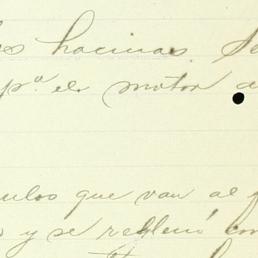 es hacinas. Se
pª el motor d
ulos que van al
y se rellenó con